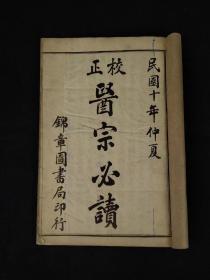 民國十年仲夏
校正
醫宗必讀
錦章圖書局印行